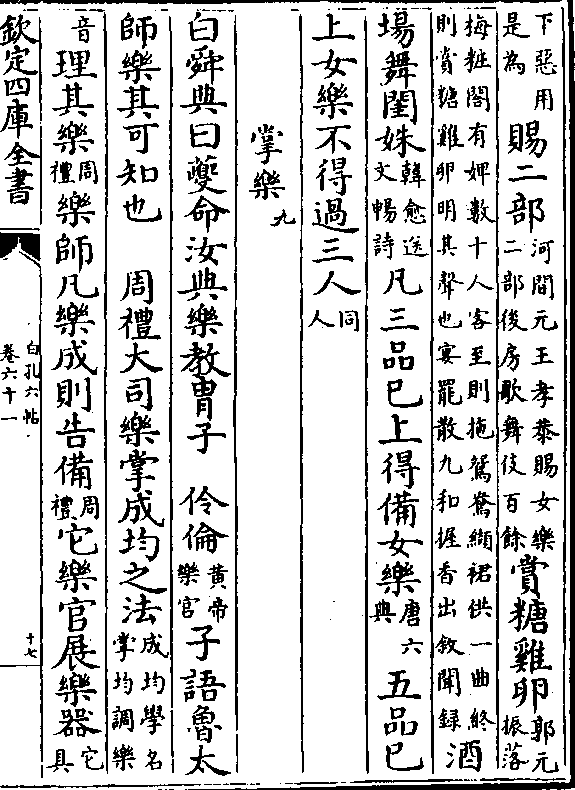 下惡用
是為
賜二部
河間元王孝恭賜女樂
二部後房歌舞伎百餘
賞糖雞卵
郭元
振落
梅粧閣有婢數十人客至則拖鴛鴦纈裙供一曲終
則賞糖雞卵明其聲也宴罷散九和握香出敘聞録
酒
場舞閨姝
韓愈送
文暢詩
凡三品已上得備女樂
唐六
典
五品已
上女樂不得過三人
同
人
掌樂
九
白舜典曰夔命汝典樂教胄子
伶倫
黃帝
樂官
子語魯太
師樂其可知也
周禮大司樂掌成均之法
成均學名
掌均調樂
音
理其樂
周
禮
樂師凡樂成則告備
周
禮
它樂官展樂器
它
具
欽定四庫全書
白孔六帖
卷六十一
十七